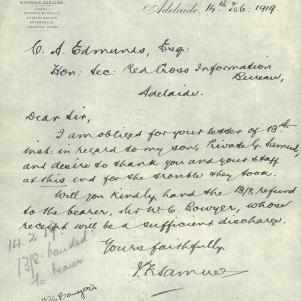 Adelaide, 14th Feb: 1919.
C. A. Edmunds, Esq:
Hon: Sec: Red Cross Information
Bureau,
Adelaide.
Dear Sir,
I am obliged for your letter of 13th
inst: in regard to my son, Private G. Samuel,
and desire to thank you and your staff
at this end for the trouble they took.
Will you kindly hand the 13/8 refund
to the bearer, Mr W. C. Bowyer, whose
receipt will be a sufficient discharge.
Yours faithfully
Samuel
14.2.19
13/8 handed
to bearer
Bowyer